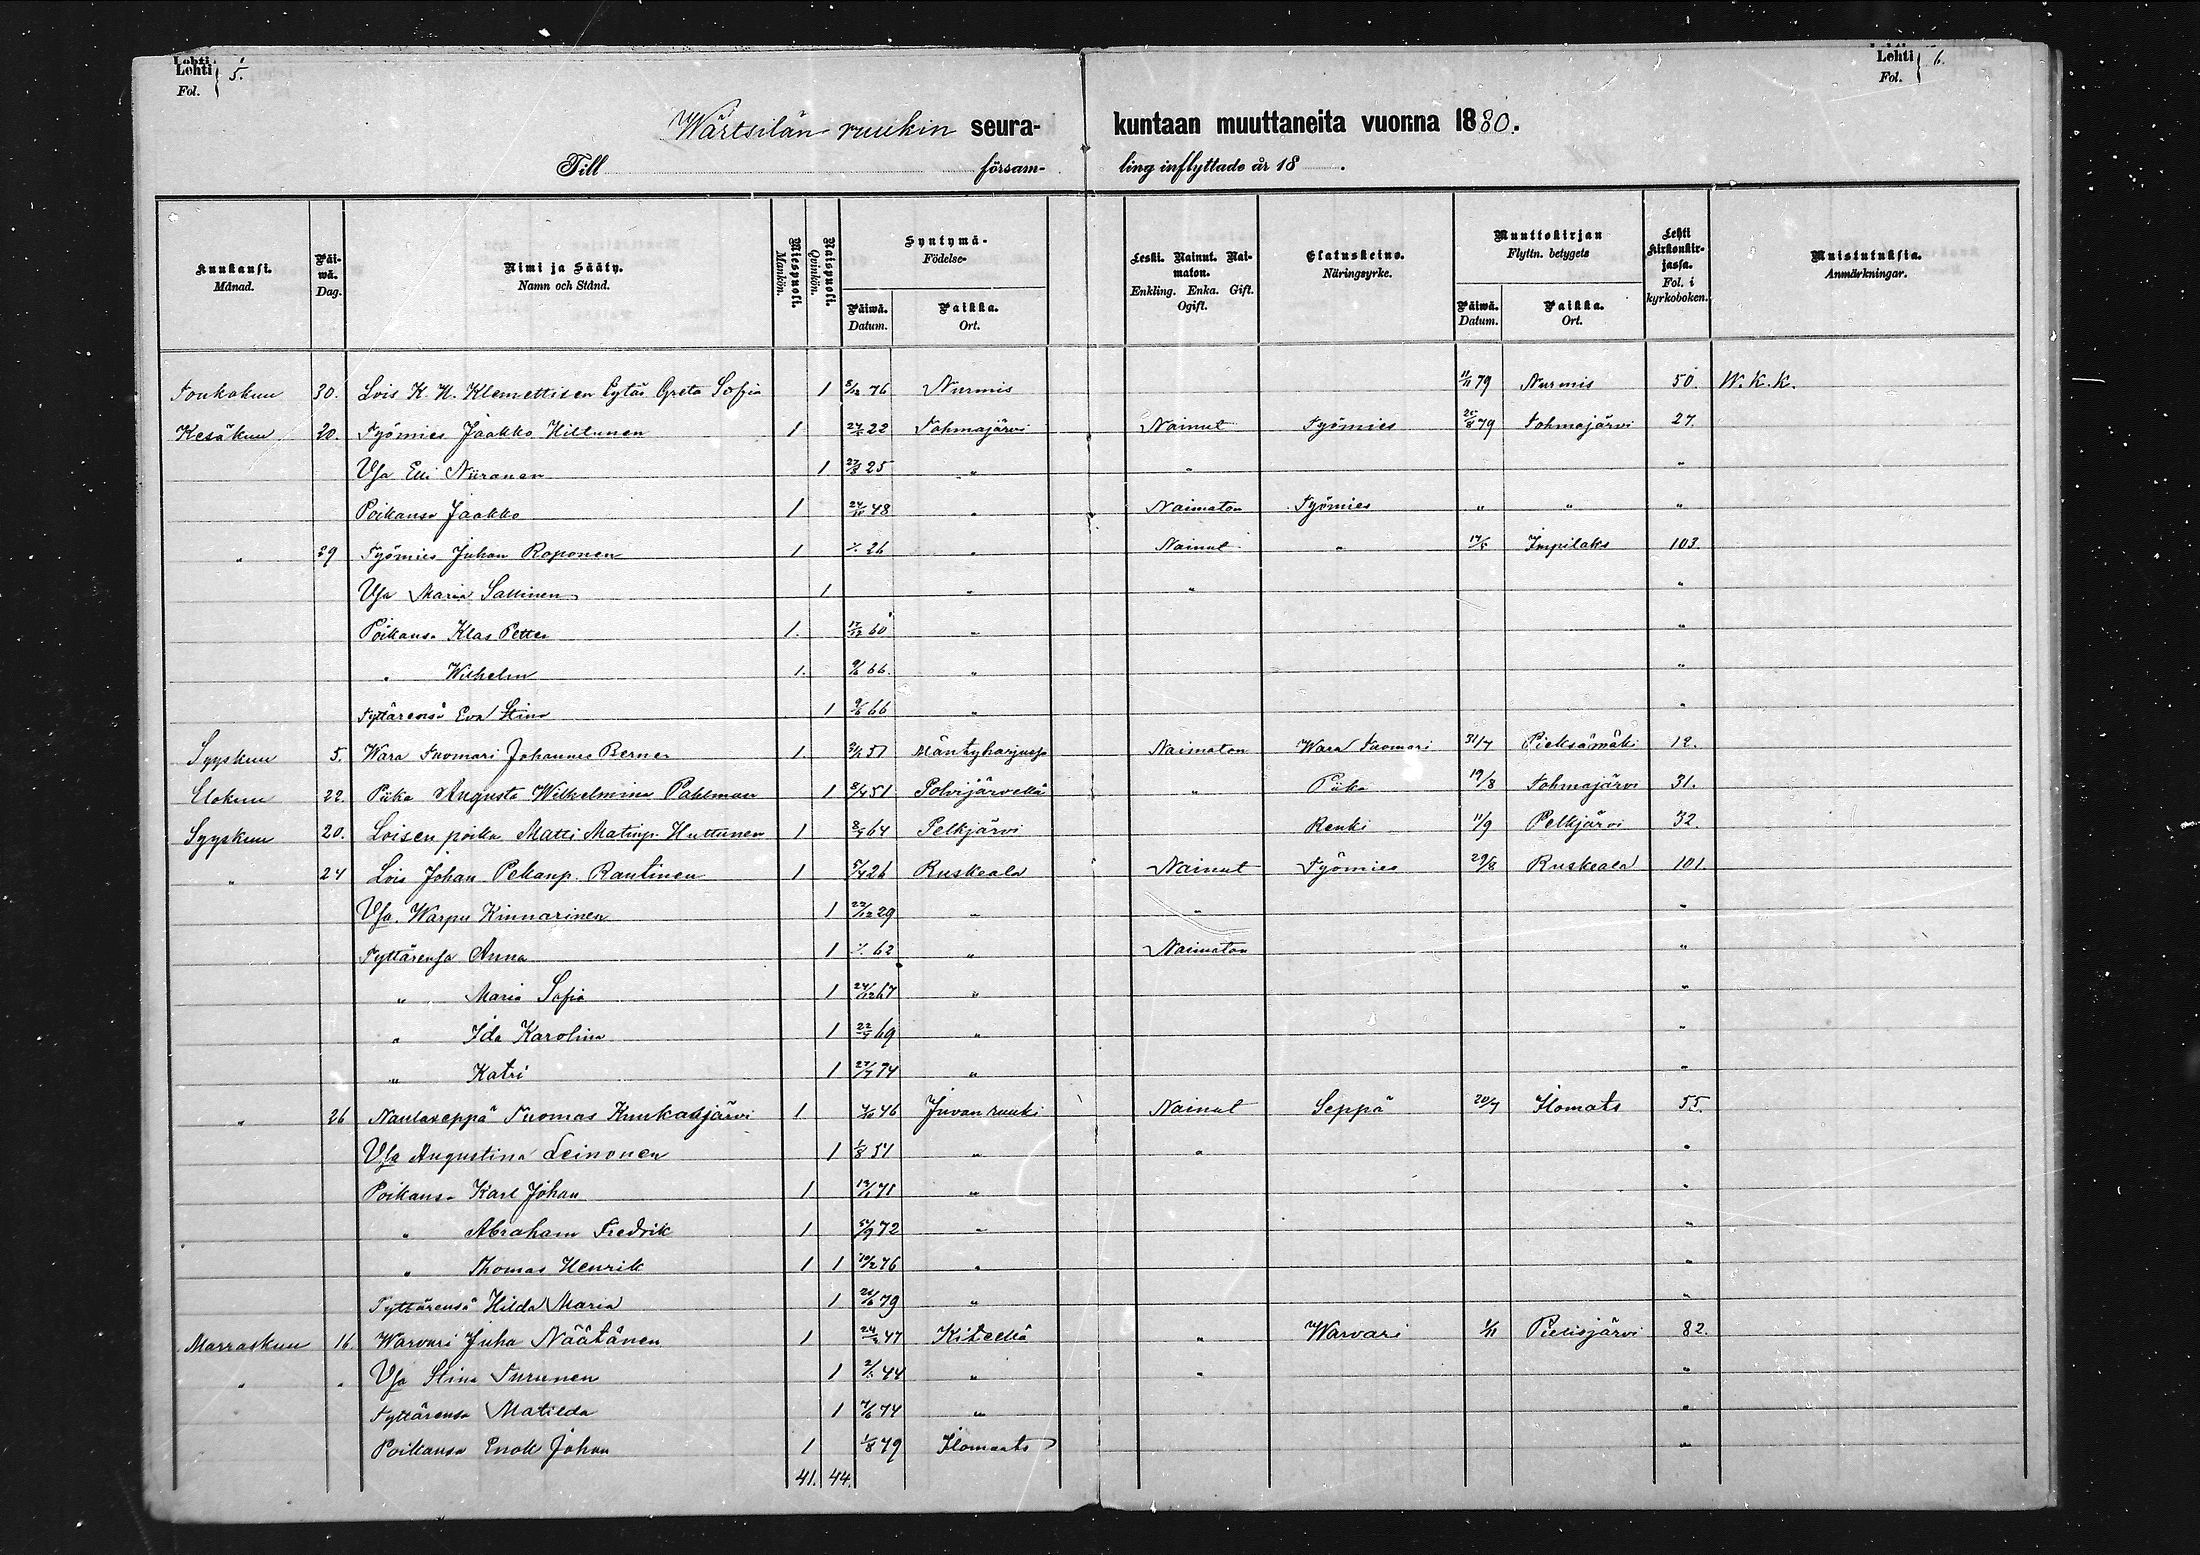 Lehti 5.
Fol.
Lehti 6.
Fol.
Wärtsilän ruukin seura- kuntaan muuttaneita vuonna 1880.
Till försam- ling inflyttade år 18 .
Kuukausi. Månad. Päi-wä. Dag. Nimi ja Sääty. Namn och Stånd. Miespuoli. Mankön. Naispuoli. Qvinkön. Syntymä- Födelse- Päiwä. Datum. Paikka. Ort. Leski. Nainut. Nai-maton. Enkling. Enka. Gift. Ogift. Elatuskeino. Näringsyrke. Muuttokirjan Flyttn. betygets Päiwä. Datum. Paikka. Ort. Lehti Kirkonkir-jassa. Fol. i kyrkoboken. Muistutuksia. Anmärkningar.
Toukokuu 30. Lois K. H. Klemettisen Tytär Greta Sofia 1 76 Nurmis 11/11 79 Nurmis 50. W. K. K.
Kesäkuu 20. Työmies Jaakko Hiltunen 1 22 Tohmajärvi Nainut Työmies 79 Tohmajärvi 27.
Vsa Elli Niiranen 1 25 " " "
Poikansa Jaakko 1 48 " Naimaton Työmies " " "
" 29 Työmies Juhan Roponen 1 26 " Nainut " Impilaks 103.
Vsa Maria Sallinen 1 " " "
Poikansa Klas Petter 1. 17/12 60 " "
" Wilhelm 1. 9/6 66. " "
Tyttärensä Eva Stina 1 9/6 66 " "
Syyskuu 5. Wara Tuomari Johannes Berner 1. 51 Mäntyharjussa Naimaton Wara Tuomari 31/7 Pieksämäki 12.
Elokuu 22. Piika Augusta Wilhelmina Pahlman 1 51 Polvijärvellä " Piika 19/8 Tohmajärvi 31.
Syyskuu 20. Loisen poika Matti Matinp. Huttunen 1 64 Pelkjärvi Renki 11/9 Pelkjärvi 32.
" 24 Lois Johan Pekanp. Rautinen 1 5/4 26 Ruskeala Nainut Työmies 29/8 Ruskeala 101.
Vsa. Warpu Kinnarinen 1 22/12 29 " " "
Tyttärensä Anna 1 62 " Naimaton "
" Maria Sofia 1 24/12 67 " "
" Ida Karolina 1 69 " "
" Katri 1 74 " "
" 26 Naulaseppä Tuomas Kuukasjärvi 1 46 Juvan ruuki Nainut Seppä 20/7 Ilomats 55.
Vsa Augustina Leinonen 1 1/8 51 " " "
Poikansa Karl Johan 1 71 " "
" Abraham Fredrik 1 5/9 72 " "
" Thomas Henrik 1 1 10/2 76 " "
Tyttärensä Hilda Maria 1 79 " "
Marraskuu 16. Warvari Juha Näätänen 1 47 Kiteellä " Warvari 1/11 Pielisjärvi 82.
" " Vsa Stina Turunen 1 44 " " "
" Tyttärensä Matilda 1 7/6 74 " "
Poikansa Enok Johan 1 1/8 79 Ilomants "
41. 44.